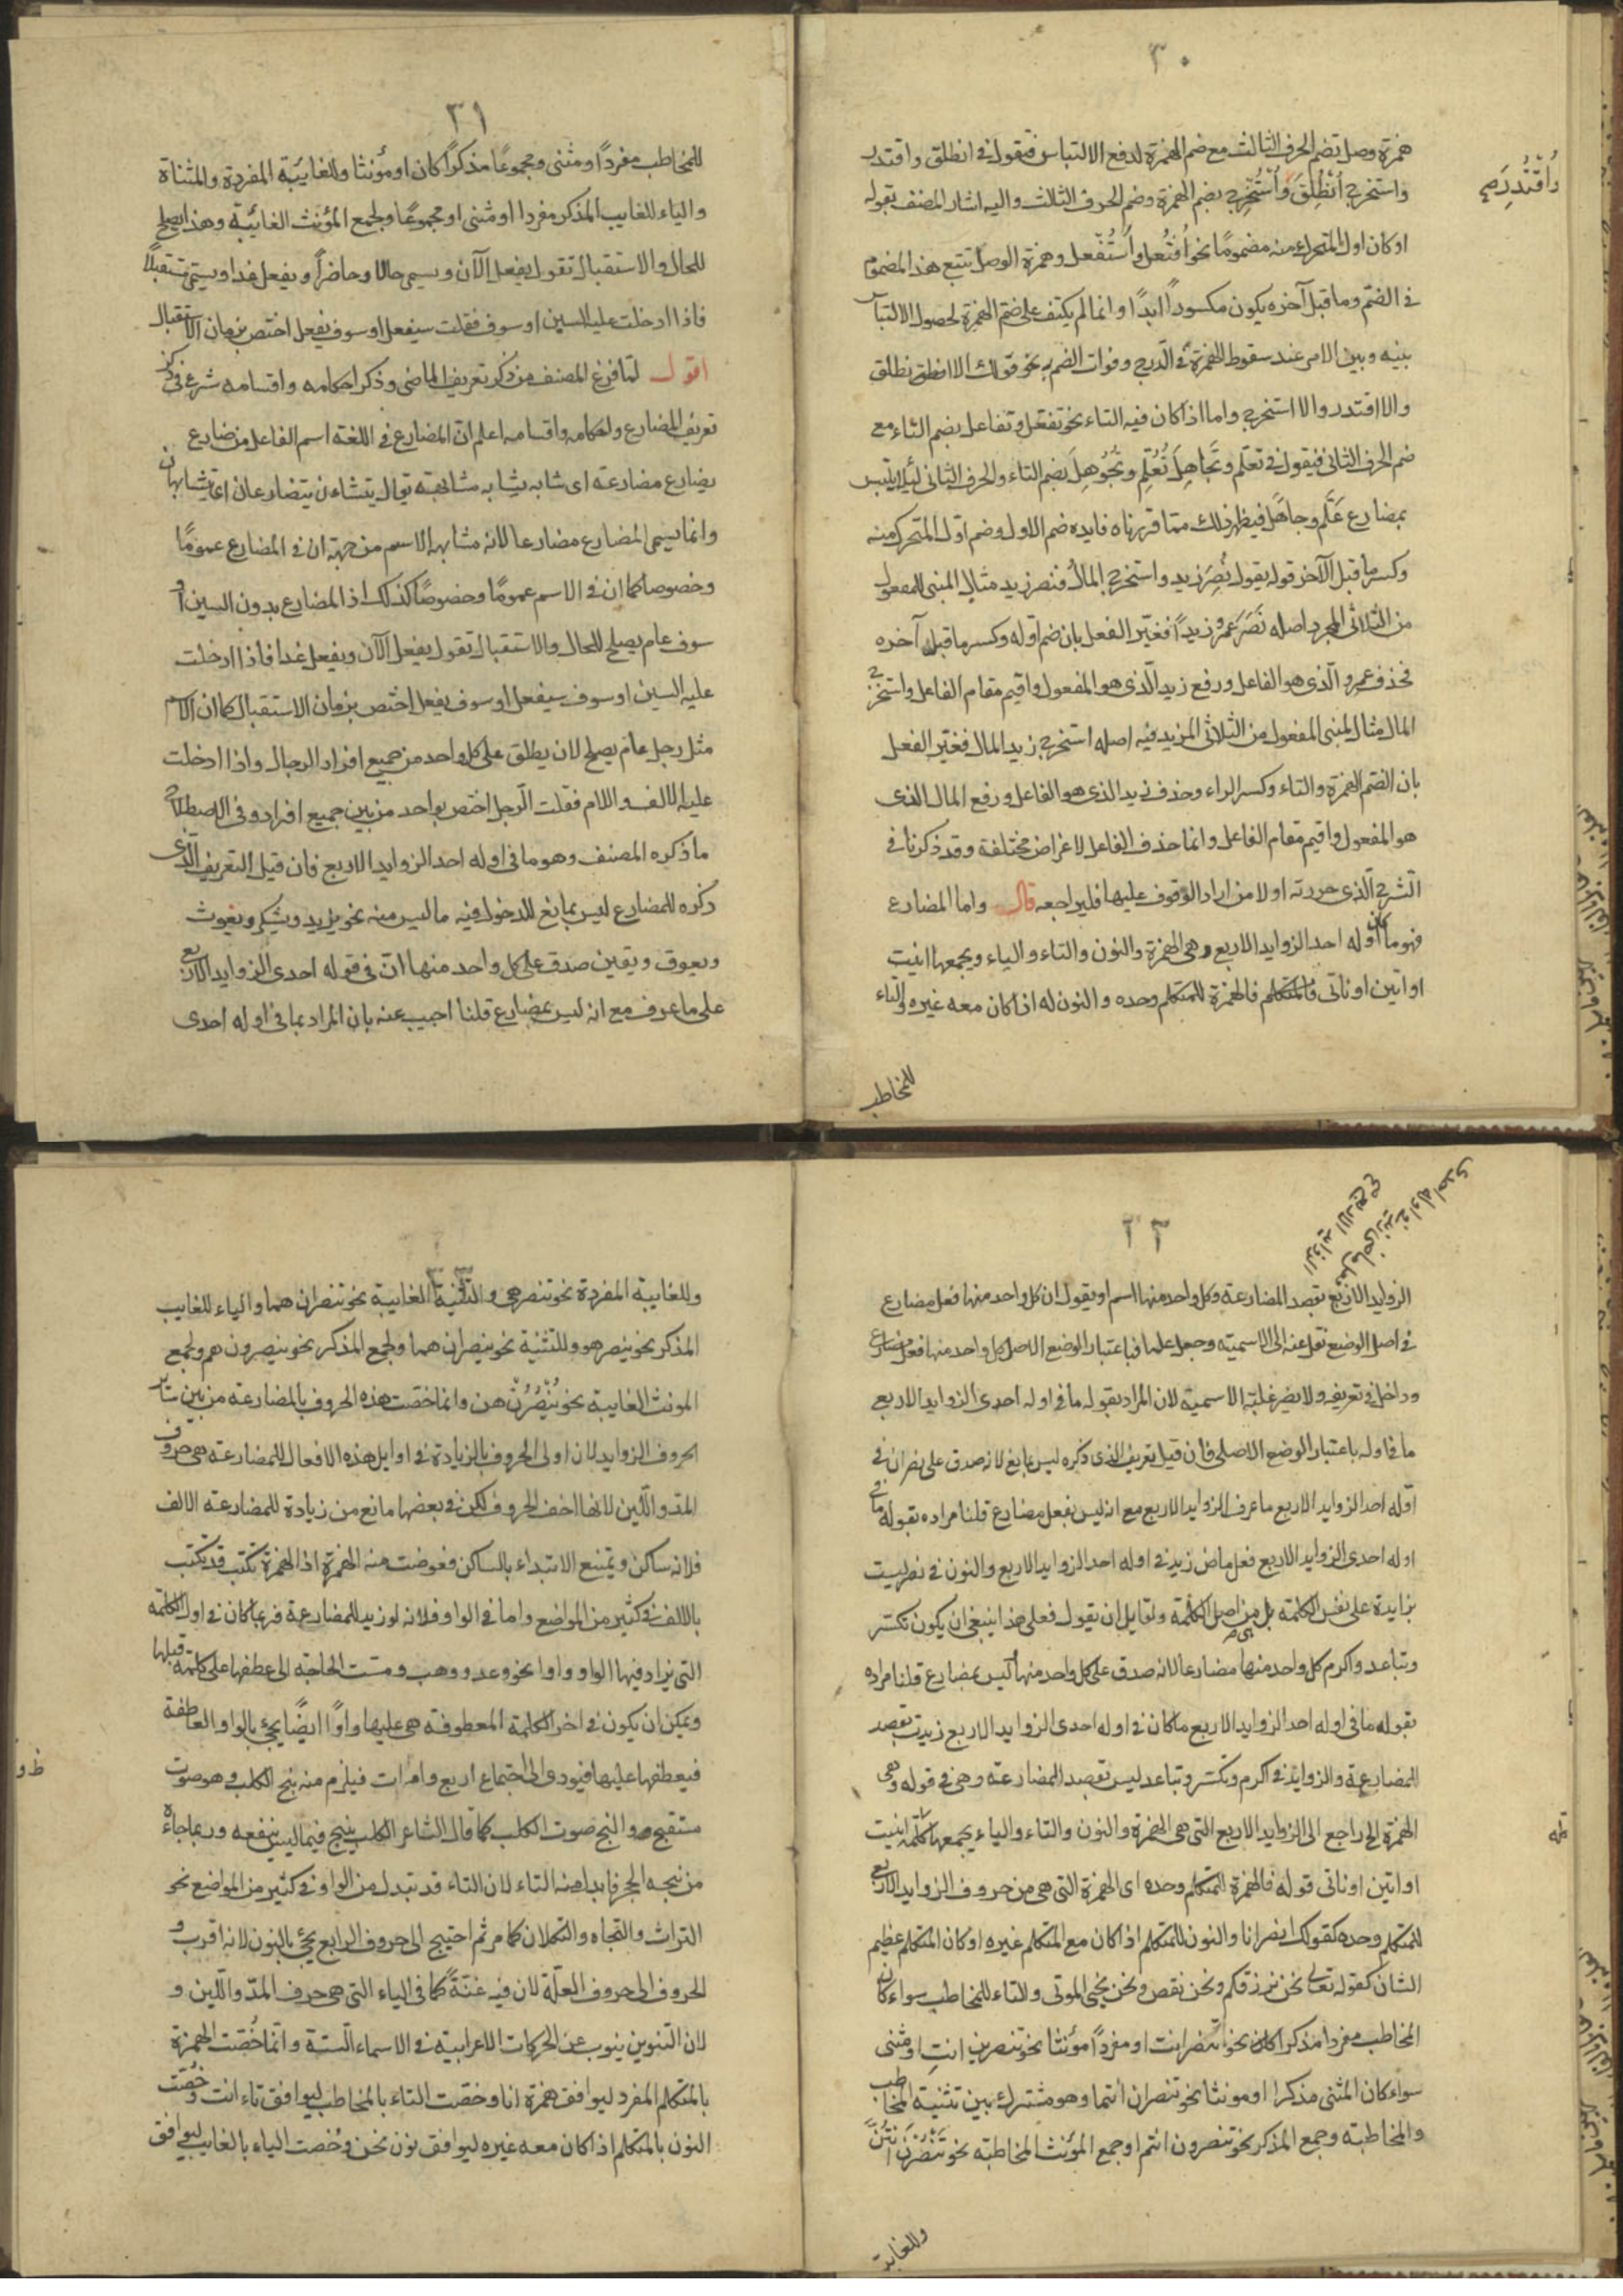 ٣٠
همزة وصل تضم الحرف الثالث مع ضم الهمزة لدفع الالتباس فتقول في انطلق واقتدر
وَاُقْتُدِرَ صح
واستخرج اُنْطُلِقَ وَاُسْتُخْرِج بضم الهمزة وضم الحرف الثالث واليه اشار المصنف بقوله
او كان اول المتحرك منه مضمومًا نحو اُفتُعل واُستُفعل وهمزة الوصل تتبع هذا المضموم
في الضم وما قبل آخره يكون مكسورًا ابدًا وانما لم يكتف على ضم الهمزة لحصول الالتباس
بينه وبين الامر عند سقوط الهمزة في الدرج وفوات الضم به نحو قولك الا انطلق نطلق
والا اقتدر والا استخرج واما اذا كان فيه التاء نحو تفعّل وتفاعل بضم التاء مع
ضم الحرف الثاني فيقول في تعلّم وتَجَاهِلَ تُعُلِّم وتُجُوهِلَ بضم التاء والحرف الثاني لئلا يلتبس
بمضارع عَلَّم وجاهَل فيظهر ذلك مما قررناه فايده ضم الاول وضم اوّل المتحرك منه
وكسر ما قبل الآخر قوله يقول نُصِرَ زيد واستخرج المالُ فنصر زيد مثال المبني للمفعول
من الثلاثي المجرد اصله نَصَرَ عمرو زيداً فغيّر الفعل بان ضم اوله وكسر ما قبل آخره
فحذف عمرو الّذي هو الفاعل ورفع زيد الّذي هو المفعول واقيم مقام الفاعل واستخرج
المال مثال المبنى للمفعول من الثلاثي المزيد فيه اصله استخرج زيد المال فغيّر الفعل
بان الضم الهمزة والتاء وكسر الراء وحذف زيد الذي هو الفاعل ورفع المال الذى
هو المفعول واقيم مقام الفاعل وانما حذف الفاعل لاغراض مختلفة وقد ذكرنا في
الشرح الّذي حررته اولا من اراد الوقوف عليها فليراجعه قال واما المضارع
فهو ما كان اوله احد الزوايد الاربع وهى الهمزة والنون والتاء والياء ويجمعها انيت
او اتين او نأتى فالهمزة للمتكلم وحده والنون له اذا كان معه غيره والتاء
للمخاطب
٣١
للمخاطب مفرداً او مثنى ومجموعًا مذكراً كان او مؤنثا وللغايبة المفردة والمثناة
والياء للغايب المذكر مفردا او مثنى او مجموعًا ولجمع المؤنث الغائبة وهذا يصلح
للحال والاستقبال تقول يفعل الآن ويسمى حالا وحاضراً ويفعل غدا ويسمّى مستقبلاً
فاذا ادخلت عليه السين او سوف فقلت سيفعل او سوف يفعل اختص بزمان الاستقبال
اقول لما فرغ المصنف من ذكر تعريف الماضى وذكر احكامه واقسامه شرع في ذكر
تعريف المضارع واحكامه واقسامه اعلم انّ المضارع في اللغة اسم الفاعل من ضارع
يضارع مضارعة اى شابه يشابه مشابهة يقال يتضارعان اى يتشابهان
وانما يسمى المضارع مضارعا لانه مشابه الاسم من جهة ان في المضارع عمومًا
وخصوصا كما ان في الاسم عمومًا وخصوصًا كذلك اذ المضارع بدون السين او
سوف عام يصلح للحال والاستقبال تقول يفعل الآن ويفعل غدا فاذا ادخلت
عليه السين او سوف سيفعل او سوف يفعل اختص بزمان الاستقبال كما ان الاسم
مثل رجل عام يصلح لان يطلق على كل واحد من جميع افراد الرجال واذا ادخلت
عليه الالف واللام فقلت الرجل اختص بواحد من بين جميع افراده وفي الاصطلاح
ما ذكره المصنف وهو ما في اوله احد الزوايد الاربع فان قيل التعريف الّذى
ذكره للمضارع ليس بمانع للدخول فيه ما ليس منه نحو يزيد ويشكر ويغوث
ويعوق ويقين صدق على كل واحد منها انّ في قوله احدى الزوايد الاربع
على ما عرف مع انه ليس بمضارع قلنا اجيب عنه بان المراد بما في اوله احدى
٣٢
الزوايد الاربع بقصد المضارعة وكل واحد منها اسم او يقول ان كل واحد منها فعل مضارع
في اصل الوضع نقل عنه الى الاسمية وجعل علما فباعتبار الوضع الاصل كل واحد منها فعل مضارع
وداخل في تعريفه ولا يضر غلبة الاسمية لان المراد بقوله ما في اوله احدى الزوايد الاربع
ما في اوله باعتبار الوضع الاصلى فان قيل تعريف الذى ذكره ليس بمانع لانه صدق على نصر ان في
اوّله احد الزوايد الاربع ما عرف الزوايد الاربع مع انه ليس بفعل مضارع قلنا مراده بقوله ما في
اوله احدى الزوايد الاربع فعل ماض زيد في اوله احد الزوايد الاربع والنون في نصر ليست
بزايدة على نفس الكلمة بل هي من اصل الكلمة ولقايل ان يقول فعلى هذا ينبغى ان يكون تكسّر
وتباعد واكرم كل واحد منها مضارعا لانه صدق على كل واحد منها ليس بمضارع قلنا مراده
بقوله ما في اوله احد الزوايد الاربع ما كان في اوله احدى الزوايد الاربع زيدت بقصد
المضارعة والزوايد في اكرم وتكسّر وتباعد ليس بقصد المضارعة وهى في قوله وهى
الهمزة الخ راجع الى الزوايد الاربع التى هى الهمزة والنون والتاء والياء يجمعها كلمة انيت
او اتين او نأتى قوله فالهمزة للمتكلم وحده اى الهمزة التى هى من حروف الزوايد الاربع
للمتكلم وحده كقولك انصر انا والنون للمتكلم اذا كان مع المتكلم غيره او كان المتكلم عظيم
الشان كقوله تعالى نحن نرزقكم ونحن نقص ونحن نحيى الموتى والتاء للمخاطب سواء كان
المخاطب مفردا مذكرا كان نحو تنصر انت او مفرداً مؤنثا نحو تنصرين انتِ او مثنى
سواء كان المثنى مذكرا او مونثا نحو تنصران انتما وهو مشترك بين تثنية المخاطب
والمخاطبة وجمع المذكر نحو تنصرون انتم او جمع المؤنث المخاطبة نحو تَنْصُرْنَ انتنّ
وللغايبة
٣٣
وللغايبة المفردة نحو تنصر هى والتثنية الغايبة نحو تنصران هما والياء للغايب
المذكر نحو ينصر هو وللتثنية نحو ينصران هما ولجمع المذكر نحو ينصرون هم ولجمع
المونث الغايبة نحو يَنْصُرْنَ هن وانما خصّت هذه الحروف بالمضارعة من بين ساير
الحروف الزوايد لان اولى الحروف بالزيادة في اوايل هذه الافعال للمضارعة هى حروف
المدّ واللّين لانها اخف الحروف لكن في بعضها مانع من زيادة للمضارعة الالف
فلانه ساكن ويمتنع الابتداء بالساكن فعوضت منه الهمزة اذ الهمزة تكتب قد تكتب
بالالف في كثير من المواضع واما في الواو فلانه لو زيد للمضارعة فربما كان في اول الكلمة
التى يزاد فيها الواو واوا نحو وعد ووهب ومسّت الحاجة الى عطفها على كلمة قبلها
ويمكن ان يكون في اخر الكلمة المعطوفة هى عليها واوًا ايضًا يجئ بالواو العاطفة
فيعطفها عليها فيؤدى الى اجتماع اربع واوات فيلزم منه نبح الكلب وهو صوت
مستقبح والنبح صوت الكلب كما قال الشاعر الكلب ينبح فيما ليس ينفعه وربما جاءه
من نبحه الحجر فابدل منه التاء لان التاء قد تبدل من الواو في كثير من المواضع نحو
التراث والتجاه والتكلان كما مر ثم احتيج الى حروف الرابع يجئ بالنون لانه اقرب
الحروف الى حروف العلّة لان فيه غنّةً كما في الياء التى هى حرف المدّ واللّين و
لان التنوين ينوب عن الحركات الاعرابية في الاسماء الستة وانما خُصّت الهمزة
بالمتكلم المفرد ليوافق همزة انا وخصّت التاء بالمخاطب ليوافق تاء انت وخُصّت
النون بالمتكلم اذا كان معه غيره ليوافق نون نحن وخُصّت الياء بالغايب ليوافق